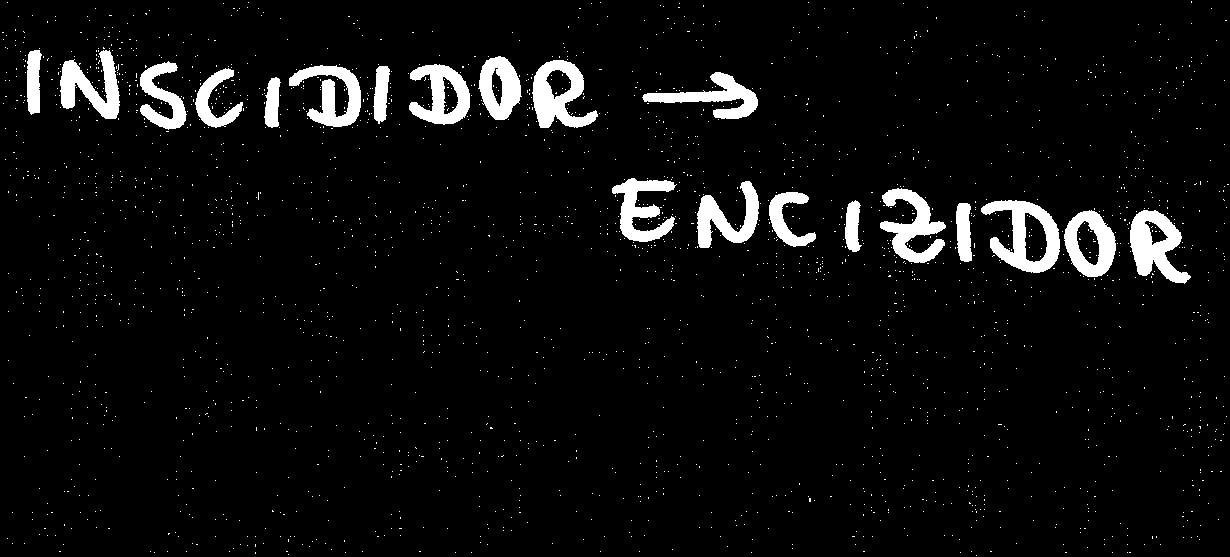 INSCIDIDOR →
ENCIZIDOR